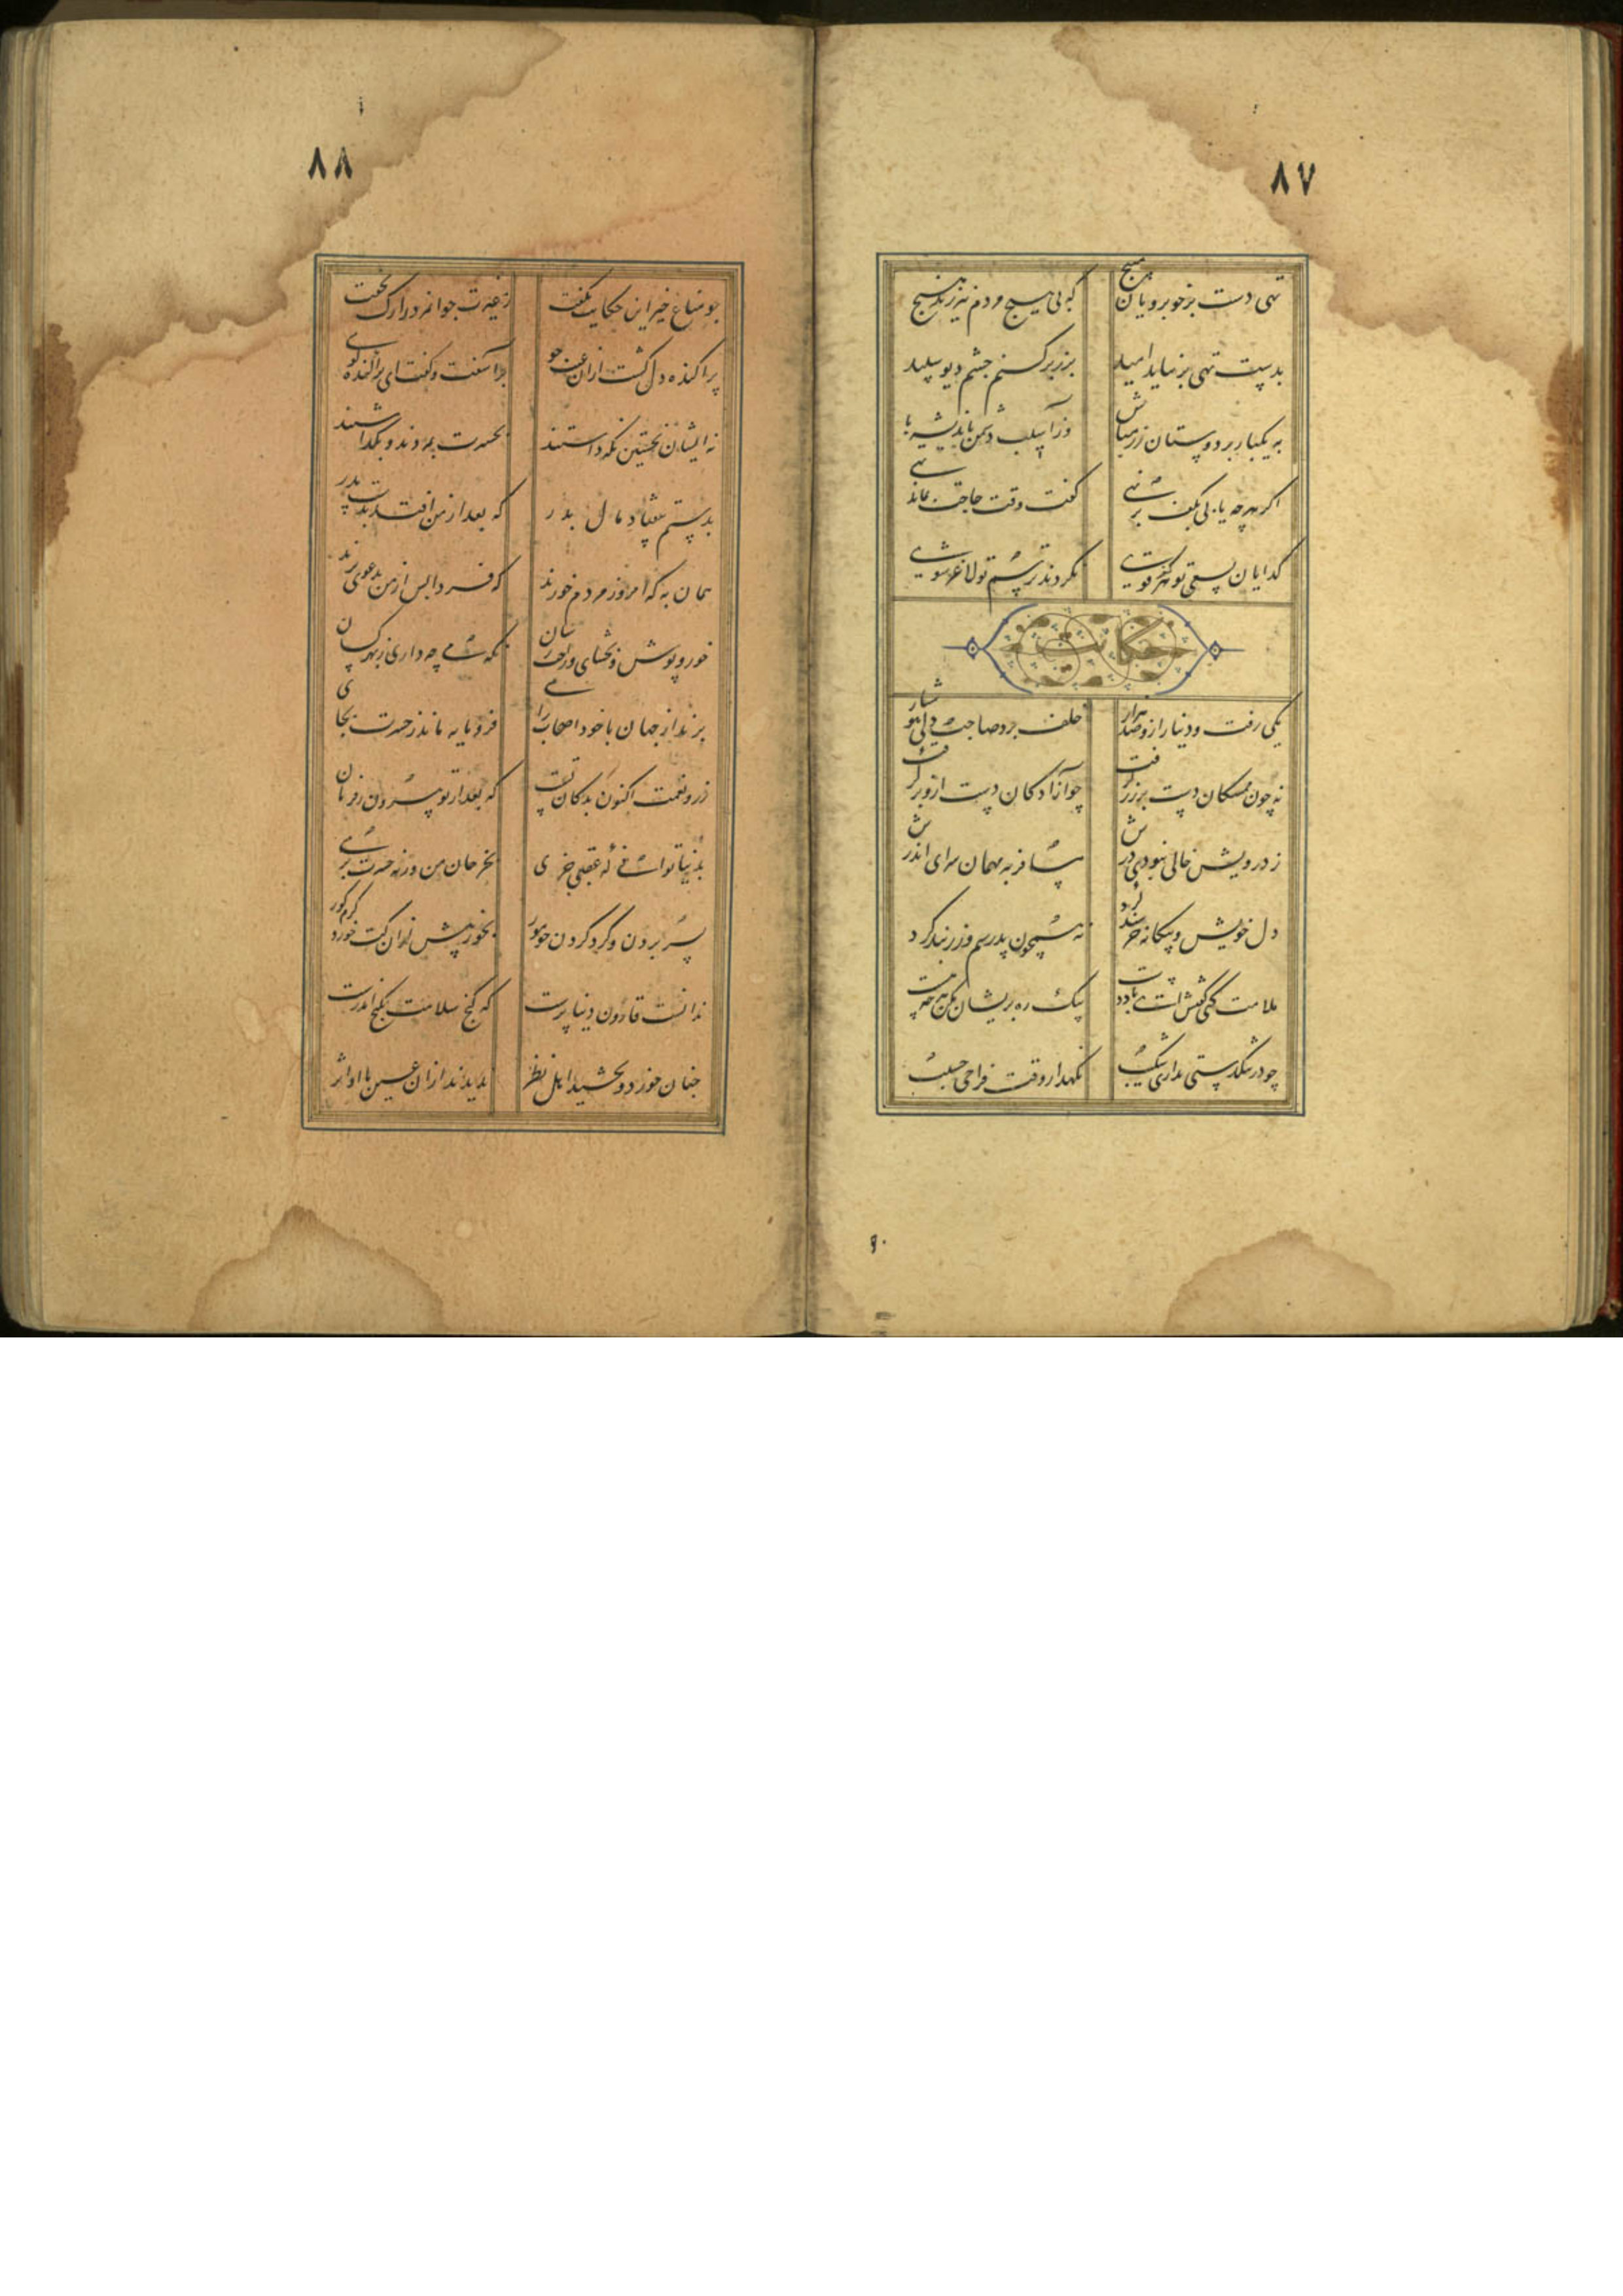 ۸۷
تهی دست بر خوبرویان مپیچ که بی هیچ مردم نیرزند هیچ
بدست تهی بر نیاید امید بزر برکنی چشم دیو سپید
به یکبار بر دوستان زر مپاش وز آسیب دشمن باندیشه باش
اگر هرچه یابی بکف بر نهی کفت وقت حاجت بماند تهی
کدایان بسعی تو هرکز قوی نکردند ترسم تو لاغر شوی
حکایت
یکی رفت و دینار ازو صد هزار خلف برد صاحب دلی هوشیار
نه چون ممسکان دست بر زر کرفت چو آزادکان دست ازو برکرفت
ز درویش خالی نبودی درش مسافر به مهمان سرای اندرش
دل خویش و بیکانه خرسند کرد نه همچون پدر سیم و زر بند کرد
ملامت کنی کفتش ای باد دست بیک ره پریشان مکن هرچه هست
چو در تنکدستی نداری شکیب نکهدار وقت فراخی حسیب
۸۸
چو مناع خیر این حکایت بکفت ز غیرت جوانمرد را رک نخفت
پراکنده دل کشت ازان عیب جوی برآشفت و کفت ای پراکنده کوی
نه ایشان بخستین نکه داشتند بحسرت بمردند و بکذاشتند
بدستم نیفتاد مال پدر که بعد از من افتد بدست پسر
همان به که امروز مردم خورند که فردا پس از من بدعوی برند
خور و پوش و بخشای و راحت رسان نکه می چه داری ز بهر کسان
برند از جهان با خود اصحاب رای فرومایه ماند ز حسرت بجای
زر و نعمت اکنون بده کان تست که بعد از تو بیرون ز فرمان
بدنیا توانی که عقبی خری بخر جان من ورنه حسرت بری
بخور پیش ازان کت خورد کرم کور
ندانست قارون دنیا پرست که کنج سلامت بکنج اندرست
چنان خورد و بخشید اهل نظر ندیدند ازان عین با او اثر